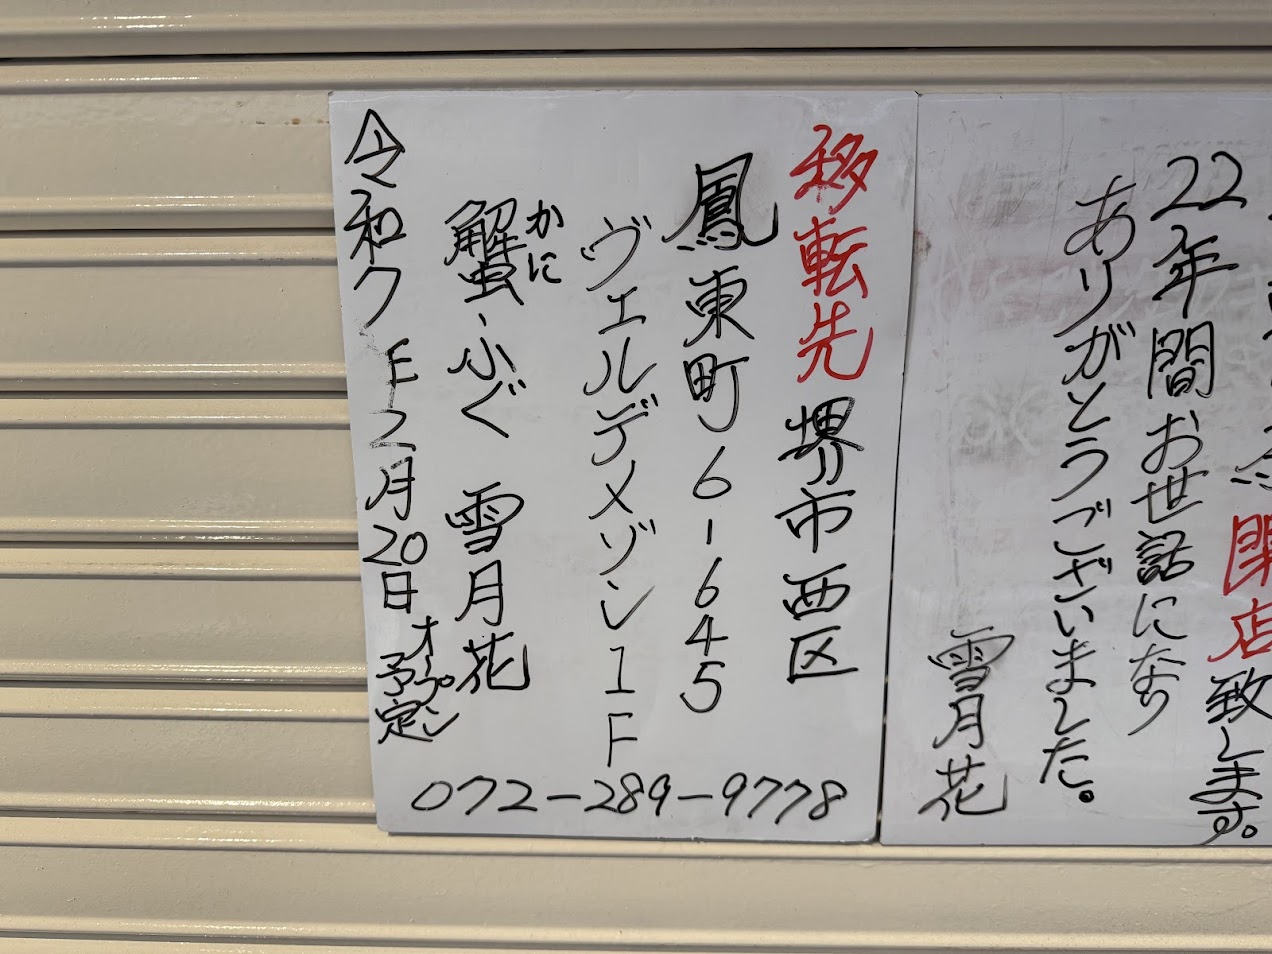 閉店致します。
22年間お世話になり
ありがとうございました。
雪月花
移転先 堺市西区
鳳東町6-645
ヴェルデメゾン1F
かに
蟹・ふぐ 雪月花
令和7年2月20日オープン予定
072-289-9778